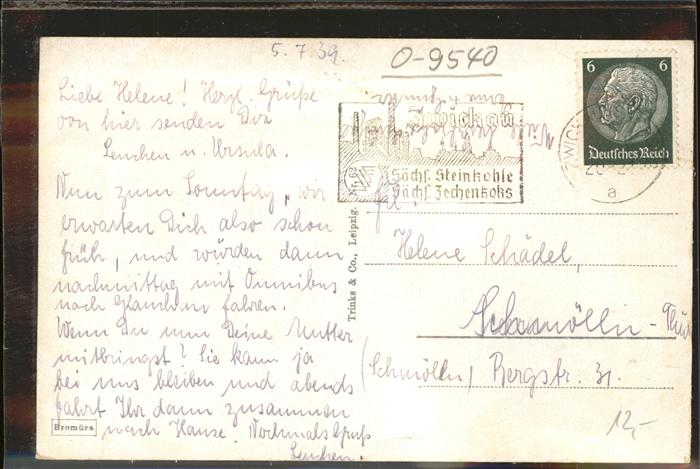 5.7.39.
0-9540
Liebe Helene! Herzl. Grüße
von hier senden Dir
Lenchen u. Ursula.
Nun zum Sonntag, wir
erwarten Dich also schon
früh, und würden dann
nachmittag mit Omnibus
nach Glauchau fahren.
Wenn Du nun Deine Mutter
mitbringst? Sie kann ja
bei uns bleiben und abends
fahrt Ihr dann zusammen
nach Hause. Nochmals Gruß
Lenchen.
Bromüra
Trinks & Co., Leipzig.
Zwickau
Sächs. Steinkohle
Sächs. Zechenkoks
6 6
Deutsches Reich
ZWICK
a
Viele
Frl.
Helene Schädel,
Schmölln - Thür
(Schmölln) Bergstr. 31.
12,-